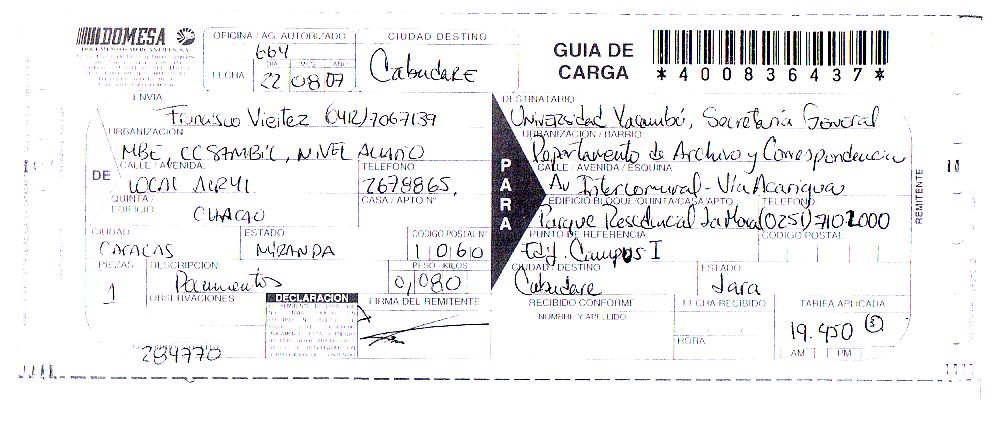 DOMESA
OFICINA / AG. AUTORIZADO
664
FECHA
DIA MES AÑO
22 08 07
CIUDAD DESTINO
Cabudare
GUIA DE
CARGA
*400836437*
ENVIA
Francisco Vieitez (0412)7067139
URBANIZACIÓN
MBE, CC SAMBIL, NIVEL
CALLE / AVENIDA
TELEFONO
DE
LOCAL
2679865.
QUINTA /
EDIFICIO
CASA / APTO N°
CHACAO
CIUDAD
ESTADO
CODIGO POSTAL N°
CARACAS
MIRANDA
1060
PIEZAS
DESCRIPCION
PESO - KILOS
1
Documentos
0,080
OBSERVACIONES
DECLARACION
FIRMA DEL REMITENTE
284770
PARA
DESTINATARIO
Universidad Yacambú, Secretaria General
URBANIZACION / BARRIO
Departamento de Archivo y Correspondencia
CALLE / AVENIDA / ESQUINA
Av Intercomunal - Vía Acarigua
EDIFICIO/BLOQUE/QUINTA/CASA/APTO
TELEFONO
Parque Residencial La Mora (0251)7102000
PUNTO DE REFERENCIA
CODIGO POSTAL
Edf. Campus I
CIUDAD / DESTINO
ESTADO
Cabudare
Lara
RECIBIDO CONFORME
FECHA RECIBIDO
TARIFA APLICADA
NOMBRE Y APELLIDO
19.450
HORA
AM PM
REMITENTE